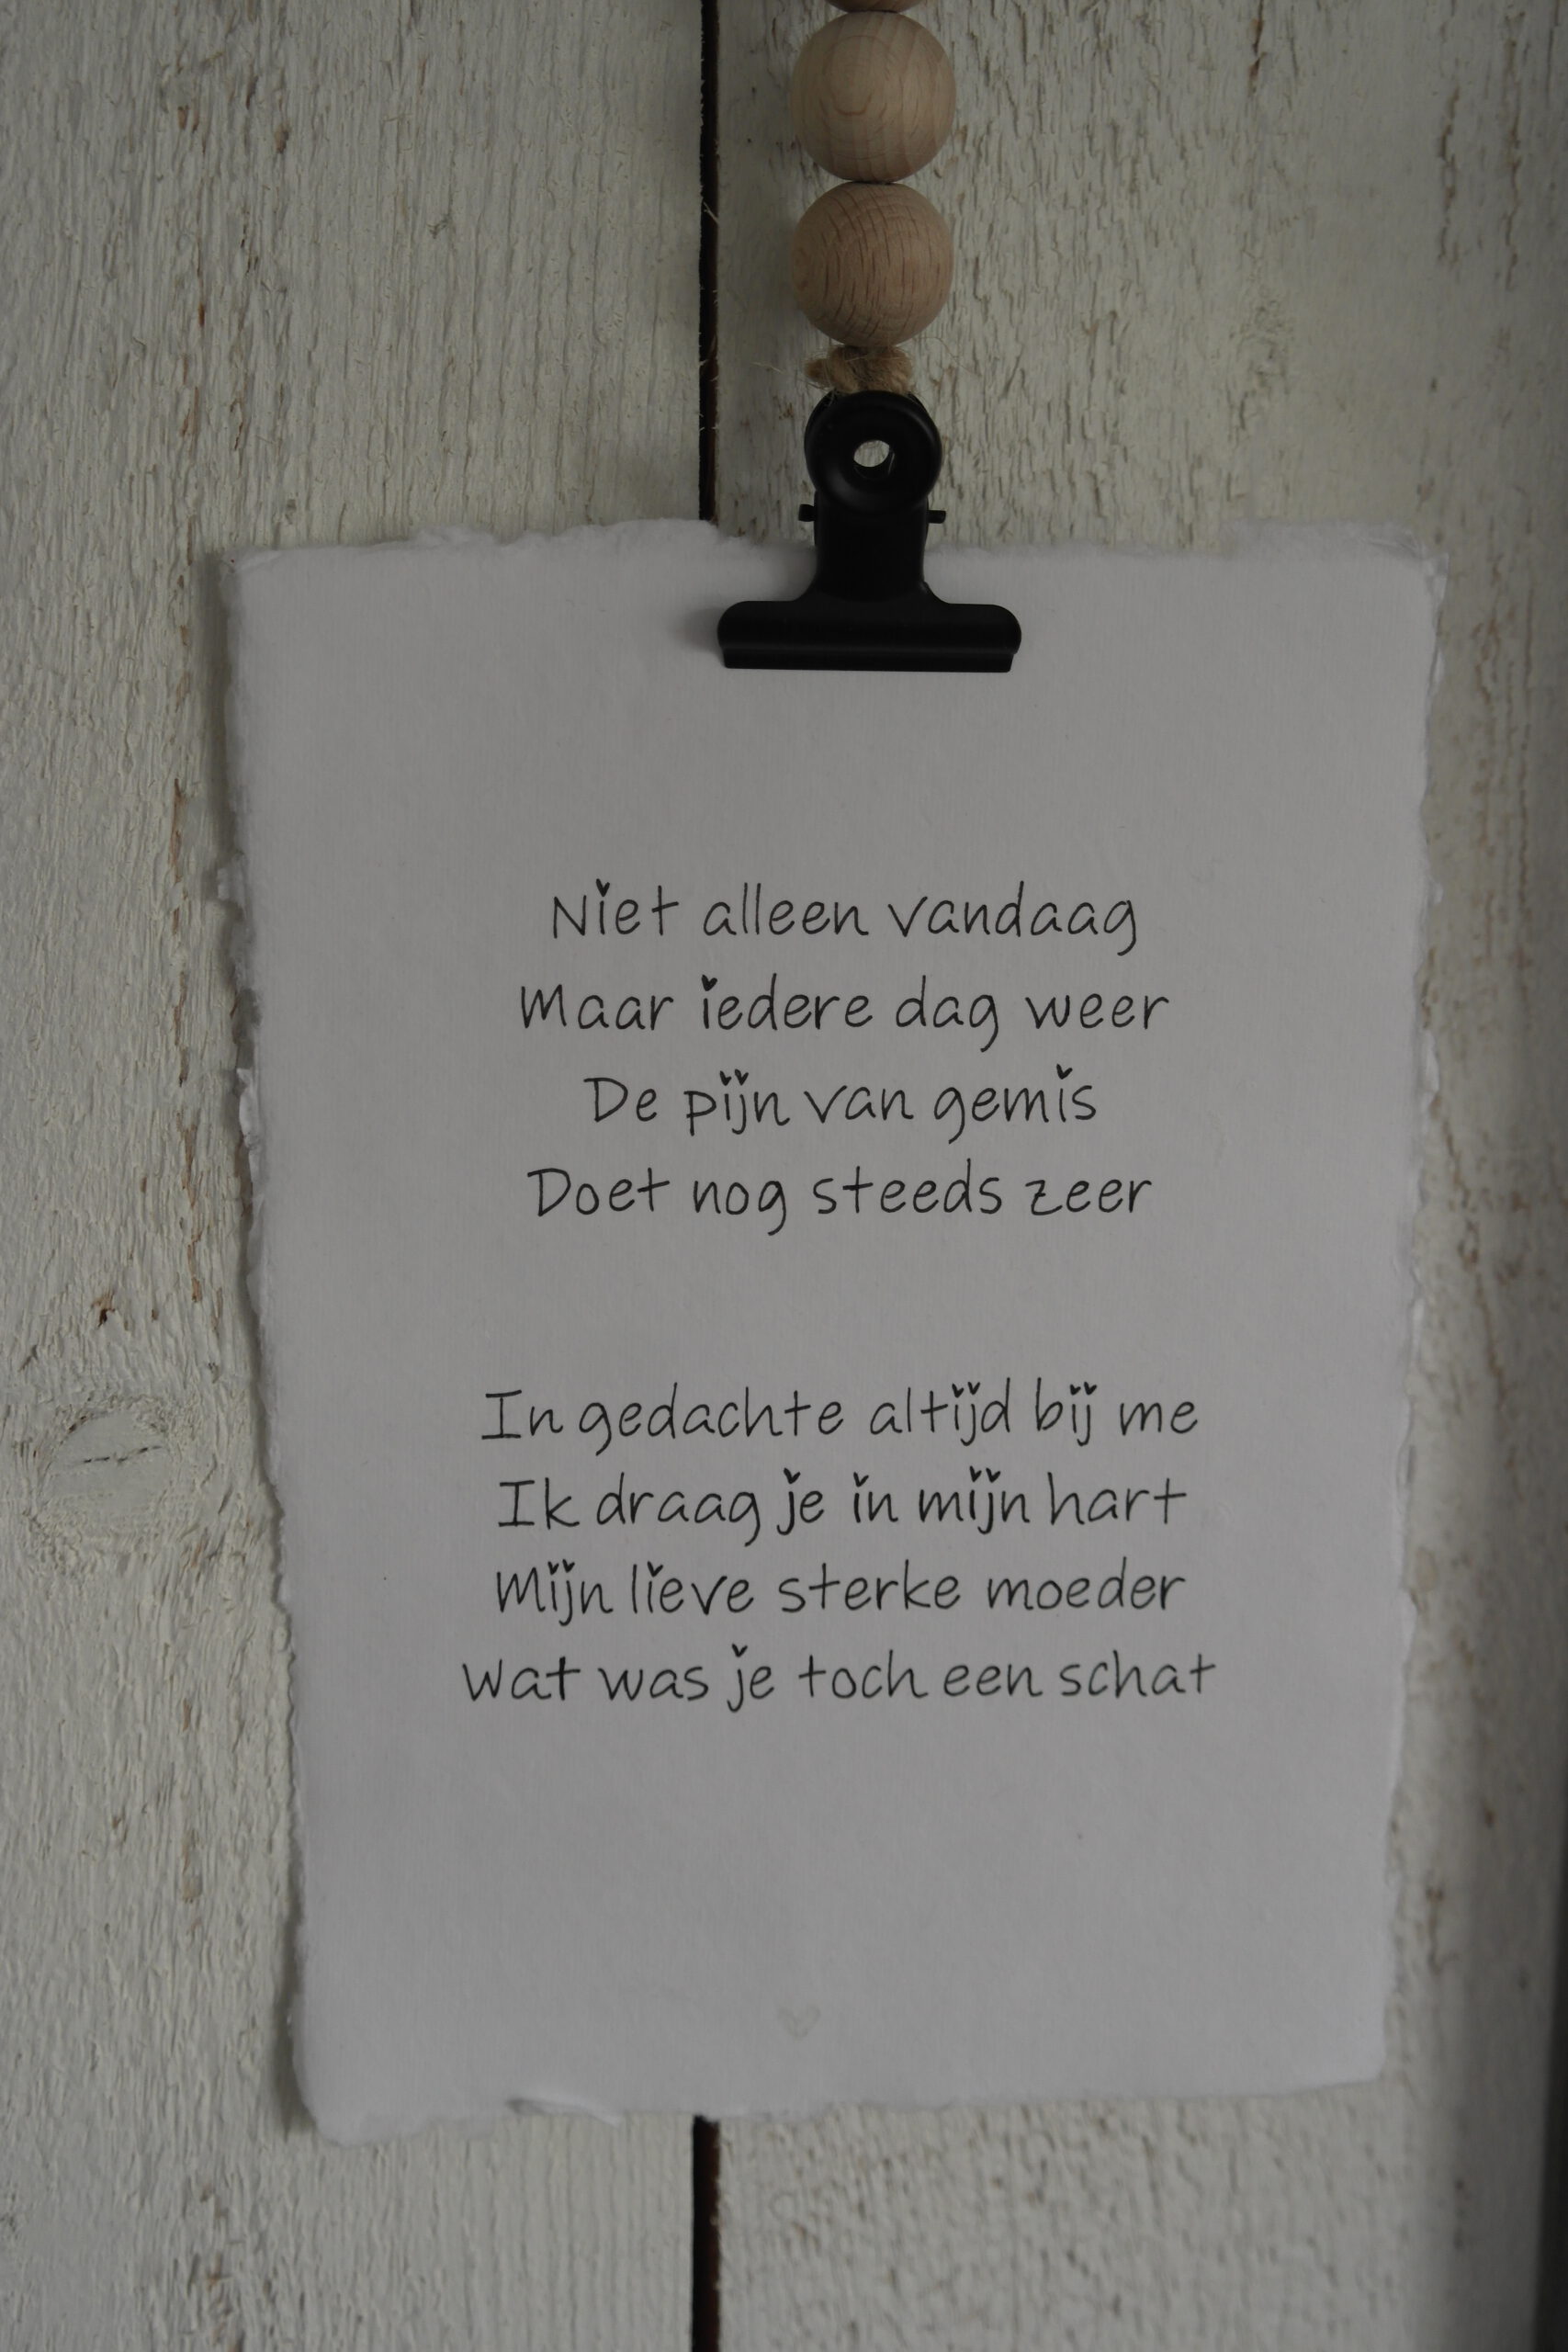 Niet alleen vandaag
Maar iedere dag weer
De pijn van gemis
Doet nog steeds zeer
In gedachte altijd bij me
Ik draag je in mijn hart
Mijn lieve sterke moeder
Wat was je toch een schat